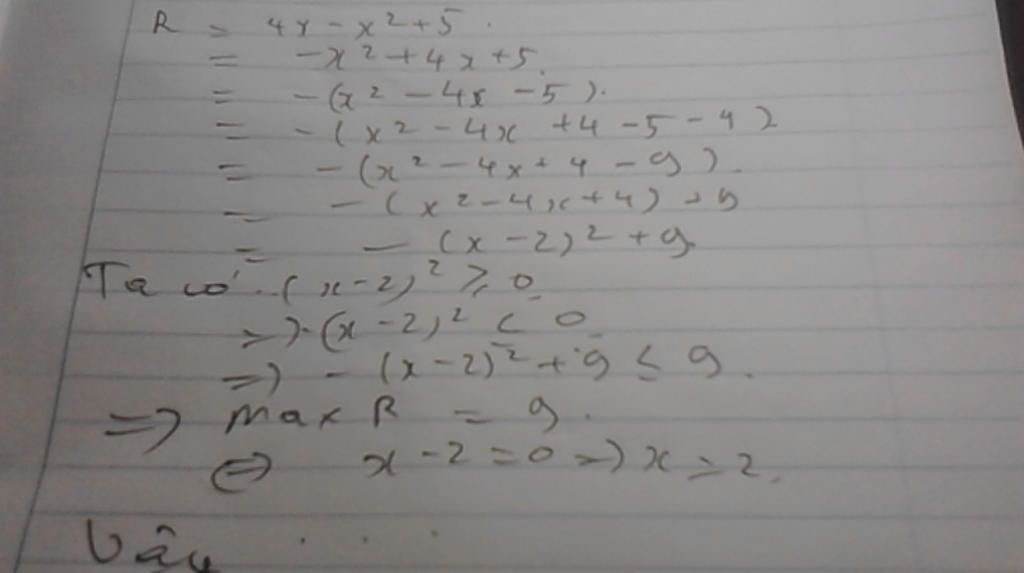 R = 4x - x² + 5.
= -x² + 4x + 5.
= -(x² - 4x - 5).
= -(x² - 4x + 4 - 5 - 4)
= -(x² - 4x + 4 - 9).
= -(x² - 4x + 4) + 9
= -(x - 2)² + 9.
Ta có. (x - 2)² ≥ 0.
=> -(x - 2)² ≤ 0.
=> -(x - 2)² + 9 ≤ 9.
=> Max R = 9.
<=> x - 2 = 0 => x = 2.
Vậy . . .